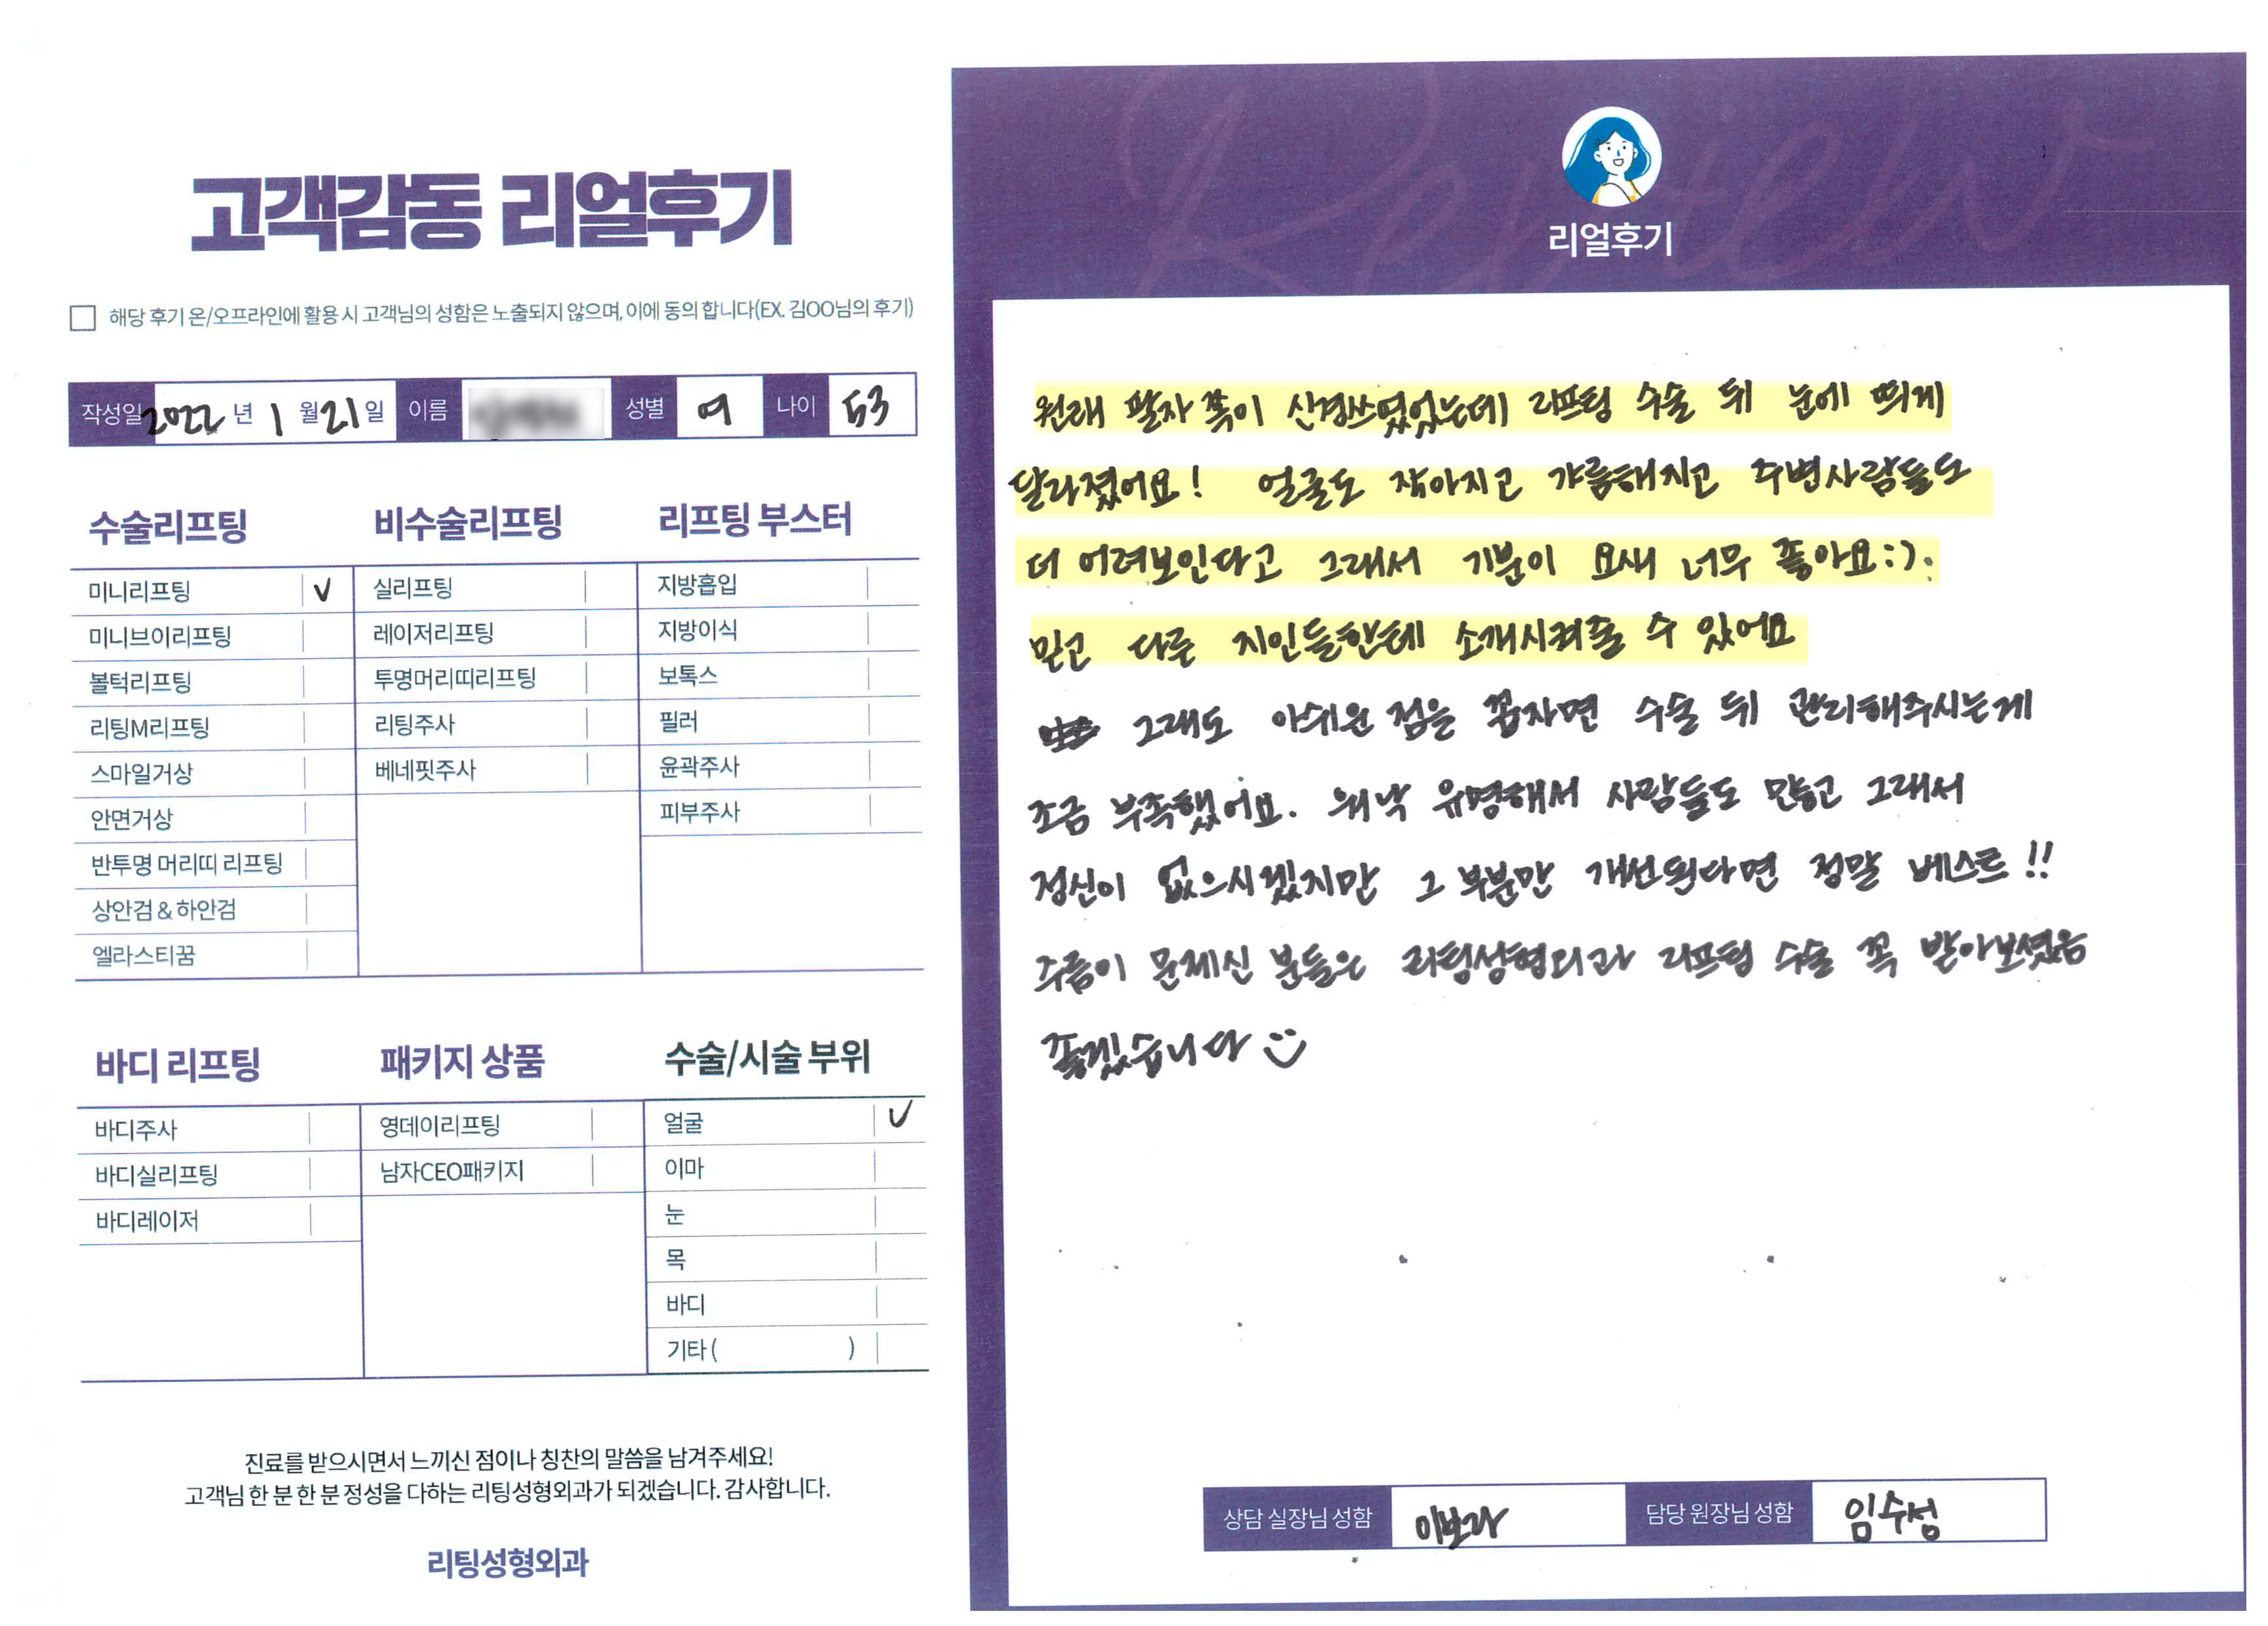 고객감동 리얼후기
해당 후기 온/오프라인에 활용 시 고객님의 성함은 노출되지 않으며, 이에 동의 합니다(EX. 김OO님의 후기)
작성일 2022 년 1 월 21 일 이름 성별 여 나이 53
수술리프팅
미니리프팅 ✓
미니브이리프팅
볼턱리프팅
리팅M리프팅
스마일거상
안면거상
반투명 머리띠 리프팅
상안검 & 하안검
엘라스티꿈
비수술리프팅
실리프팅
레이저리프팅
투명머리띠리프팅
리팅주사
베네핏주사
리프팅 부스터
지방흡입
지방이식
보톡스
필러
윤곽주사
피부주사
바디 리프팅
바디주사
바디실리프팅
바디레이저
패키지 상품
영데이리프팅
남자CEO패키지
수술/시술 부위
얼굴 ✓
이마
눈
목
바디
기타 ( )
진료를 받으시면서 느끼신 점이나 칭찬의 말씀을 남겨주세요!
고객님 한 분 한 분 정성을 다하는 리팅성형외과가 되겠습니다. 감사합니다.
리팅성형외과
Review
리얼후기
원래 팔자 쪽이 신경쓰였었는데 리프팅 수술 뒤 눈에 띄게
달라졌어요! 얼굴도 작아지고 갸름해지고 주변사람들도
더 어려보인다고 그래서 기분이 요새 너무 좋아요:).
믿고 다른 지인들한테 소개시켜줄 수 있어요
그래도 아쉬운 점을 꼽자면 수술 뒤 관리해주시는게
조금 부족했어요. 워낙 유명해서 사람들도 많고 그래서
정신이 없으시겠지만 그 부분만 개선된다면 정말 베스트!!
주름이 문제신 분들은 리팅성형외과 리프팅 수술 꼭 받아보셨음
좋겠습니다
상담 실장님 성함 이보라 담당 원장님 성함 임수성